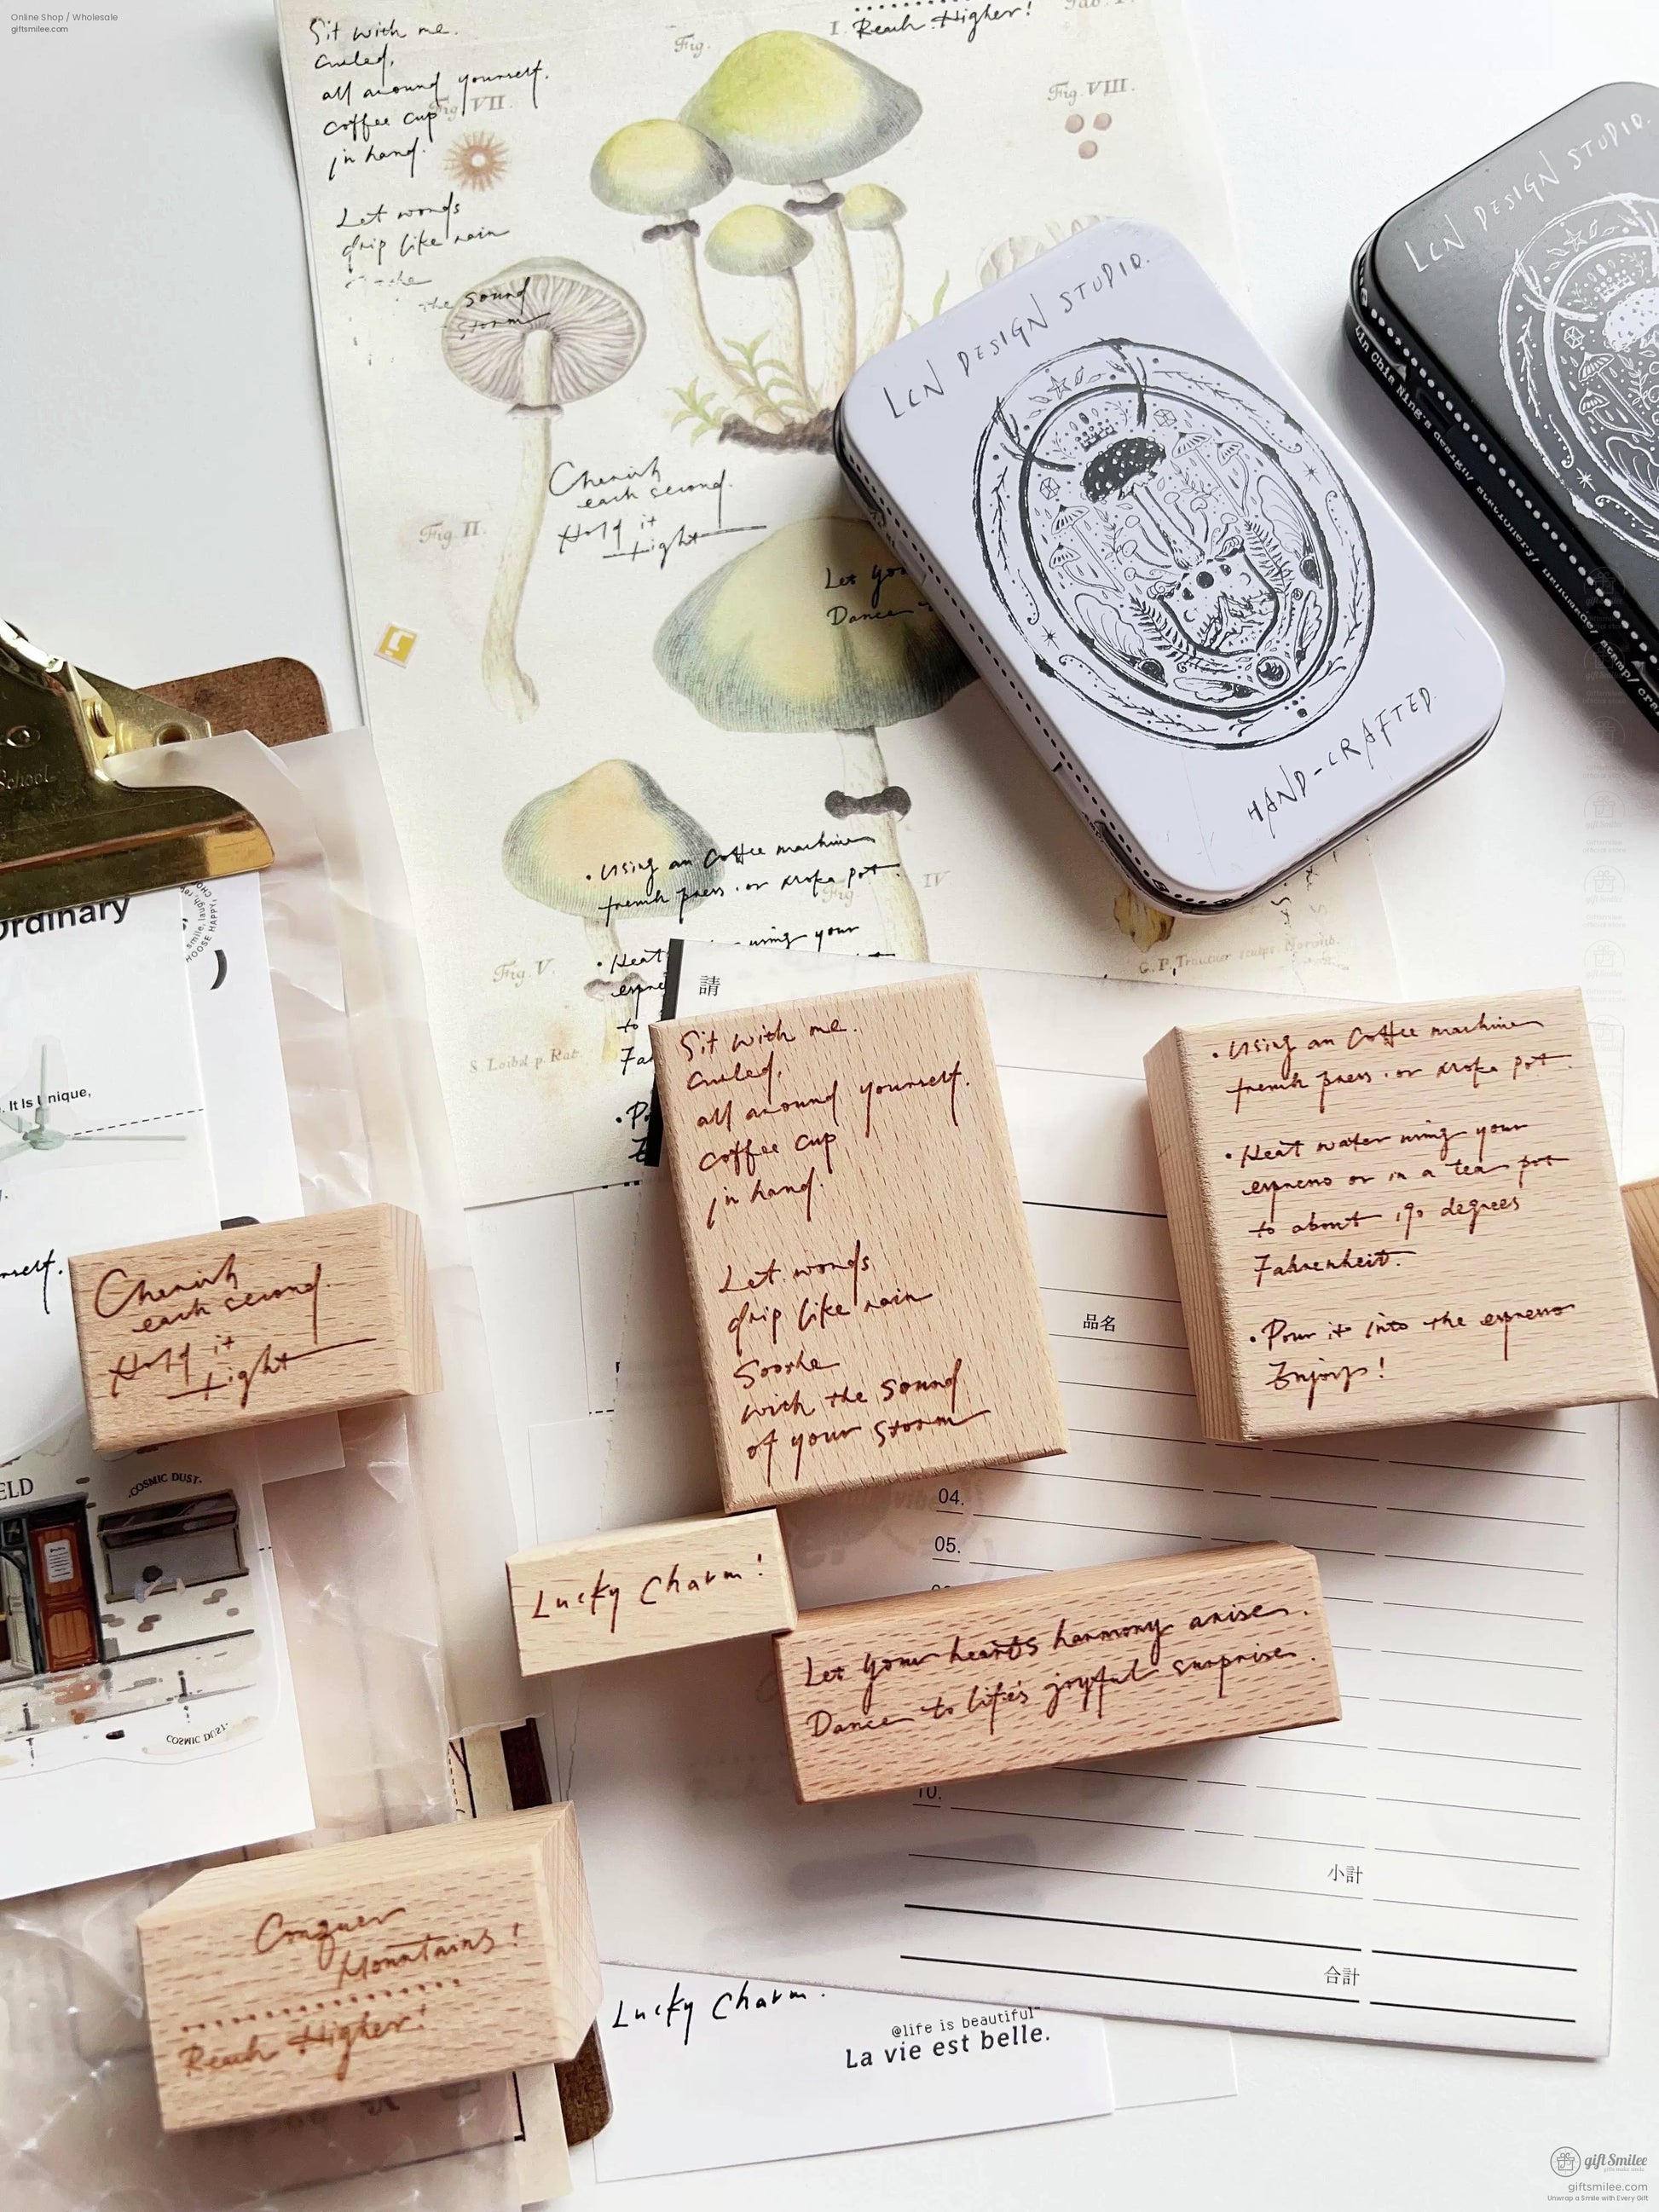 Online Shop / Wholesale
giftsmilee.com
Sit with me.
Curled,
all around yourself.
coffee cup
in hand.
Let words
drip like rain
the sound
storm
Fig.
I.
Reach Higher!
Fig. VII.
Fig. VIII.
Fig. II.
Cherish
each second.
Hold it
tight
Let you
Dance
LCN DESIGN STUDIO.
HAND-CRAFTED
LCN DESIGN STUDIO.
Lin Chia Ning's design/ stationery/ handmade/ stamp/
• Using an Coffee machine
french press . or moka pot .
• Heat using your
Fig IV
Fig. V.
to
S. Loibel p. Rat.
School
Ordinary
. It Is Unique,
請
Sit with me.
Curled,
all around yourself.
coffee cup
in hand.
Let words
drip like rain
Soothe
with the sound
of your storm
• Using an Coffee machine
french press . or moka pot .
• Heat water using your
espresso or in a tea pot
to about 190 degrees
Fahrenheit.
• Pour it into the espresso
Enjoys!
Cherish
each second.
Hold it
tight
品名
04.
05.
Lucky Charm!
Let your heart's harmony arise.
Dance to life's joyful surprise.
10.
小計
合計
ELD
COSMIC DUST.
COSMIC DUST.
Conquer
Mountains!
Reach Higher!
Lucky Charm.
@life is beautiful
La vie est belle.
gift Smilee
giftsmilee.com
Unwrap a Smile with Every Gift